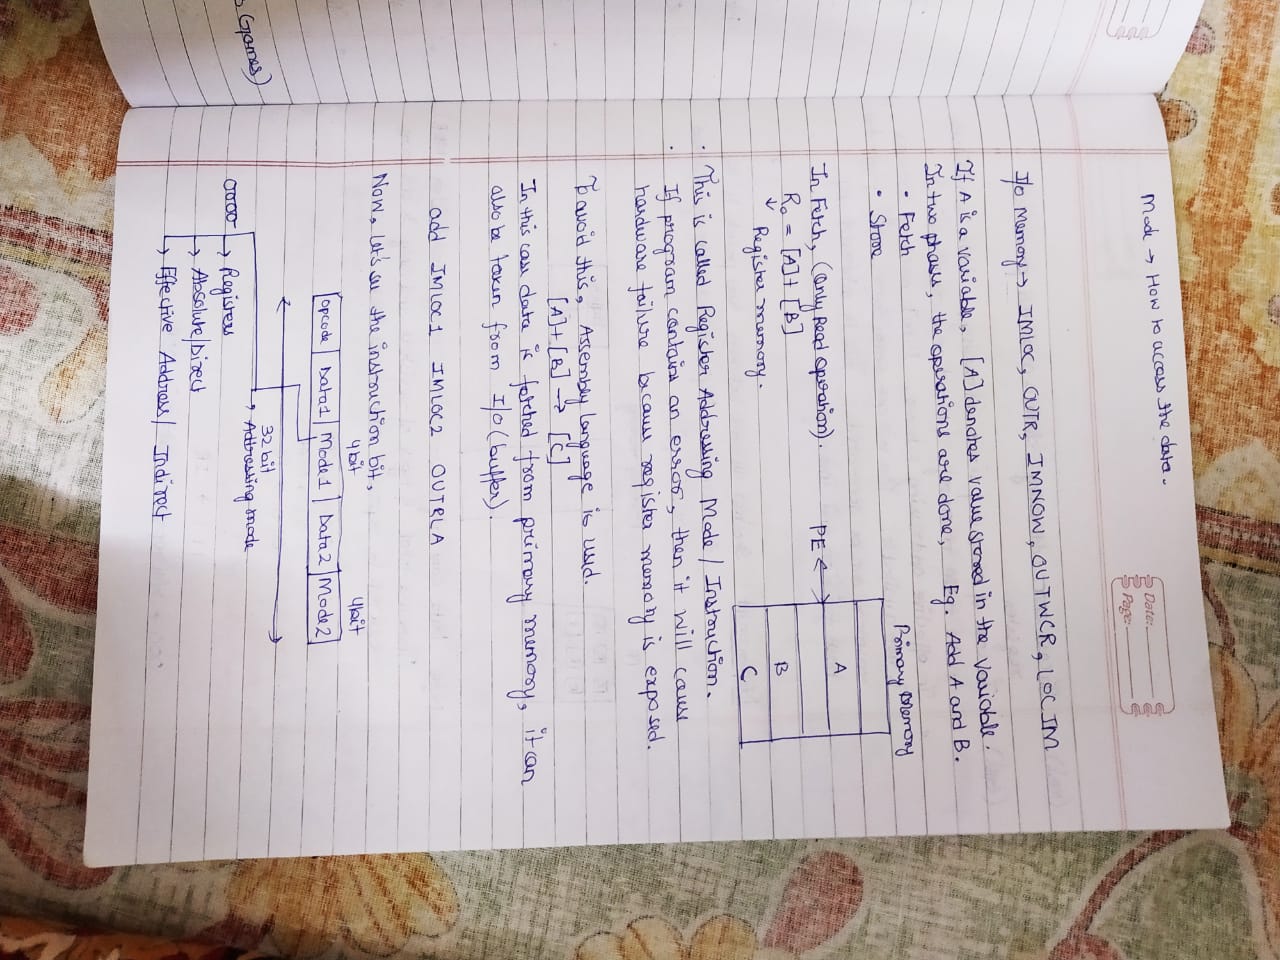 Date:
Page:
Mode → How to access the data.
I/O Memory → IMLOC, OUTR, IMNOW, OUTWCR, LOCIM
If A is a variable, [A] denotes value stored in the variable.
In two phases, the operations are done, Eg. Add A and B.
• Fetch
• Store
Primary Memory
A
B
C
PE
In Fetch, (only Read operation).
R₀ = [A] + [B]
↓ Register memory.
• This is called Register Addressing Mode / Instruction.
• If program contains an error, then it will cause
hardware failure because register memory is exposed.
To avoid this, Assembly language is used.
[A] + [B] → [C]
In this case data is fetched from primary memory, it can
also be taken from I/O (buffer).
add IMLOC1 IMLOC2 OUTRLA
Now, let's see the instruction bit,
4bit 4bit
Opcode | Data1 | Mode1 | Data2 | Mode2
32 bit
→ Addressing mode
→ Registers
→ Absolute/Direct
→ Effective Address/ Indirect
(Games)